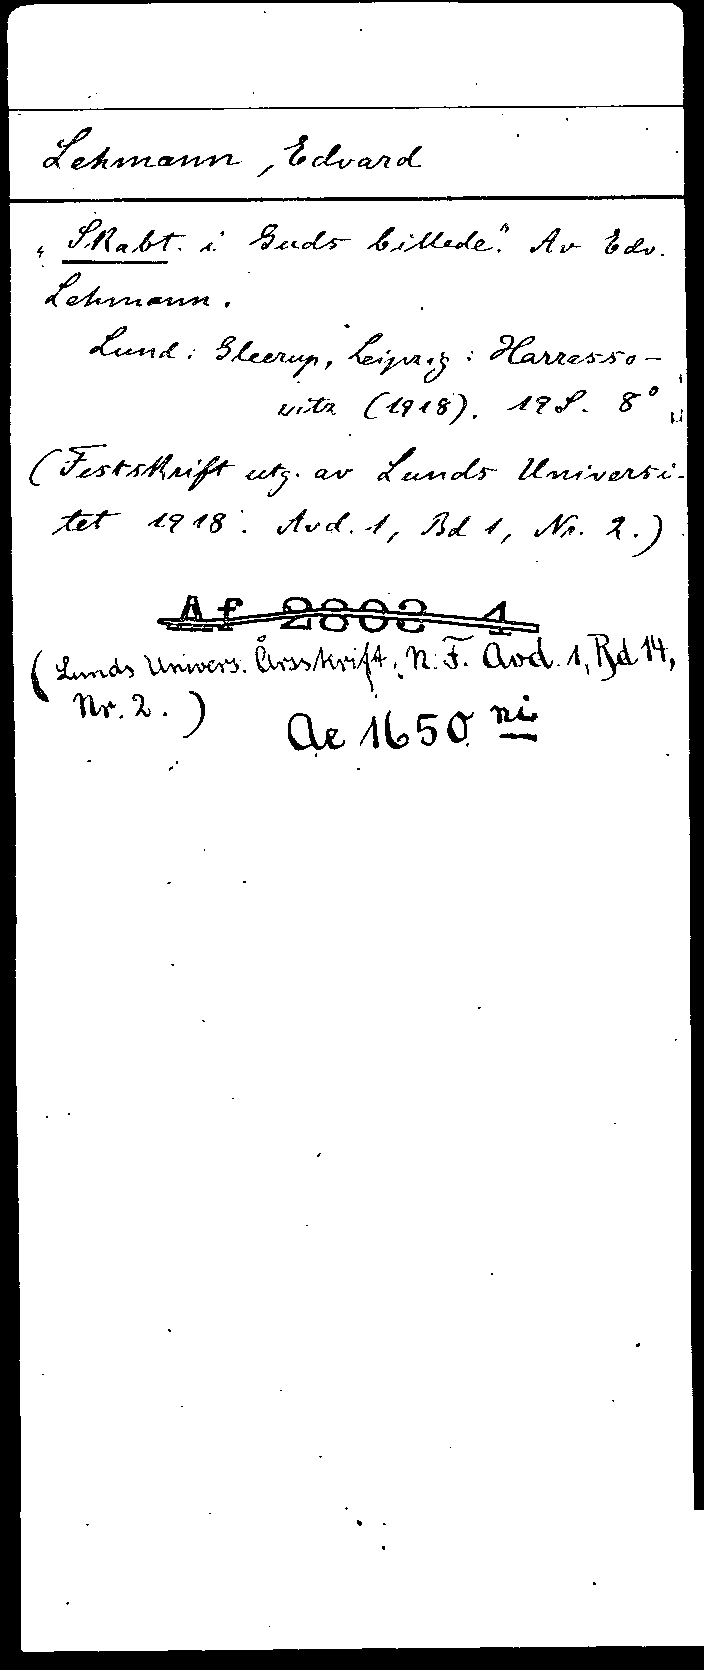 Lehmann, Edvard
„Skabt i Guds billede." Av Edv.
Lehmann.
Lund: Gleerup, Leipzig: Harrasso-
witz (1918). 19 S. 8°
(Festskrift utg. av Lunds Universi-
tet 1918. Avd. 1, Bd 1, Nr. 2.)
Af 2803 4
(Lunds Univers. Årsskrift, N. F. Avd. 1, Bd 14,
Nr. 2.)
Ae 1650 ni